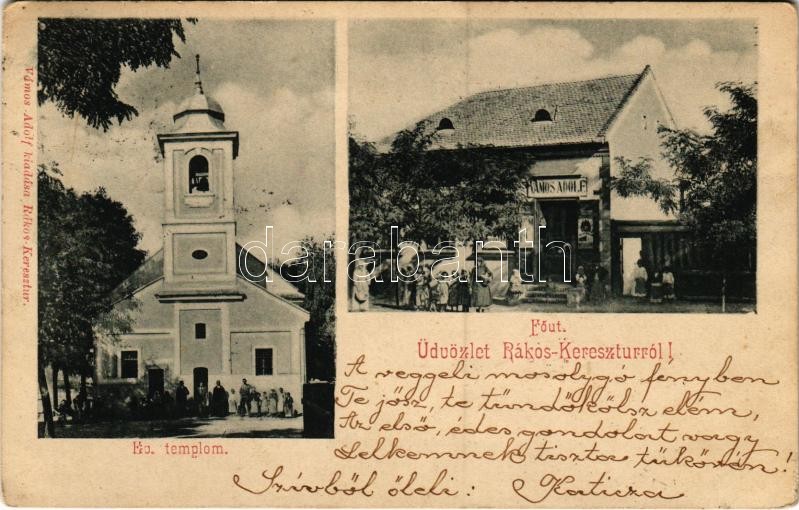 Vámos Adolf kiadása Rákos-Keresztur.
VÁMOS ADOLF
darabanth
Főut.
Üdvözlet Rákos-Kereszturról!
Ev. templom.
A reggeli mosolygó fényben
Te jösz, te tündökölsz elém,
Az első, édes gondolat vagy
Lelkemnek tiszta tükörén!
Szívből öleli: Katicza